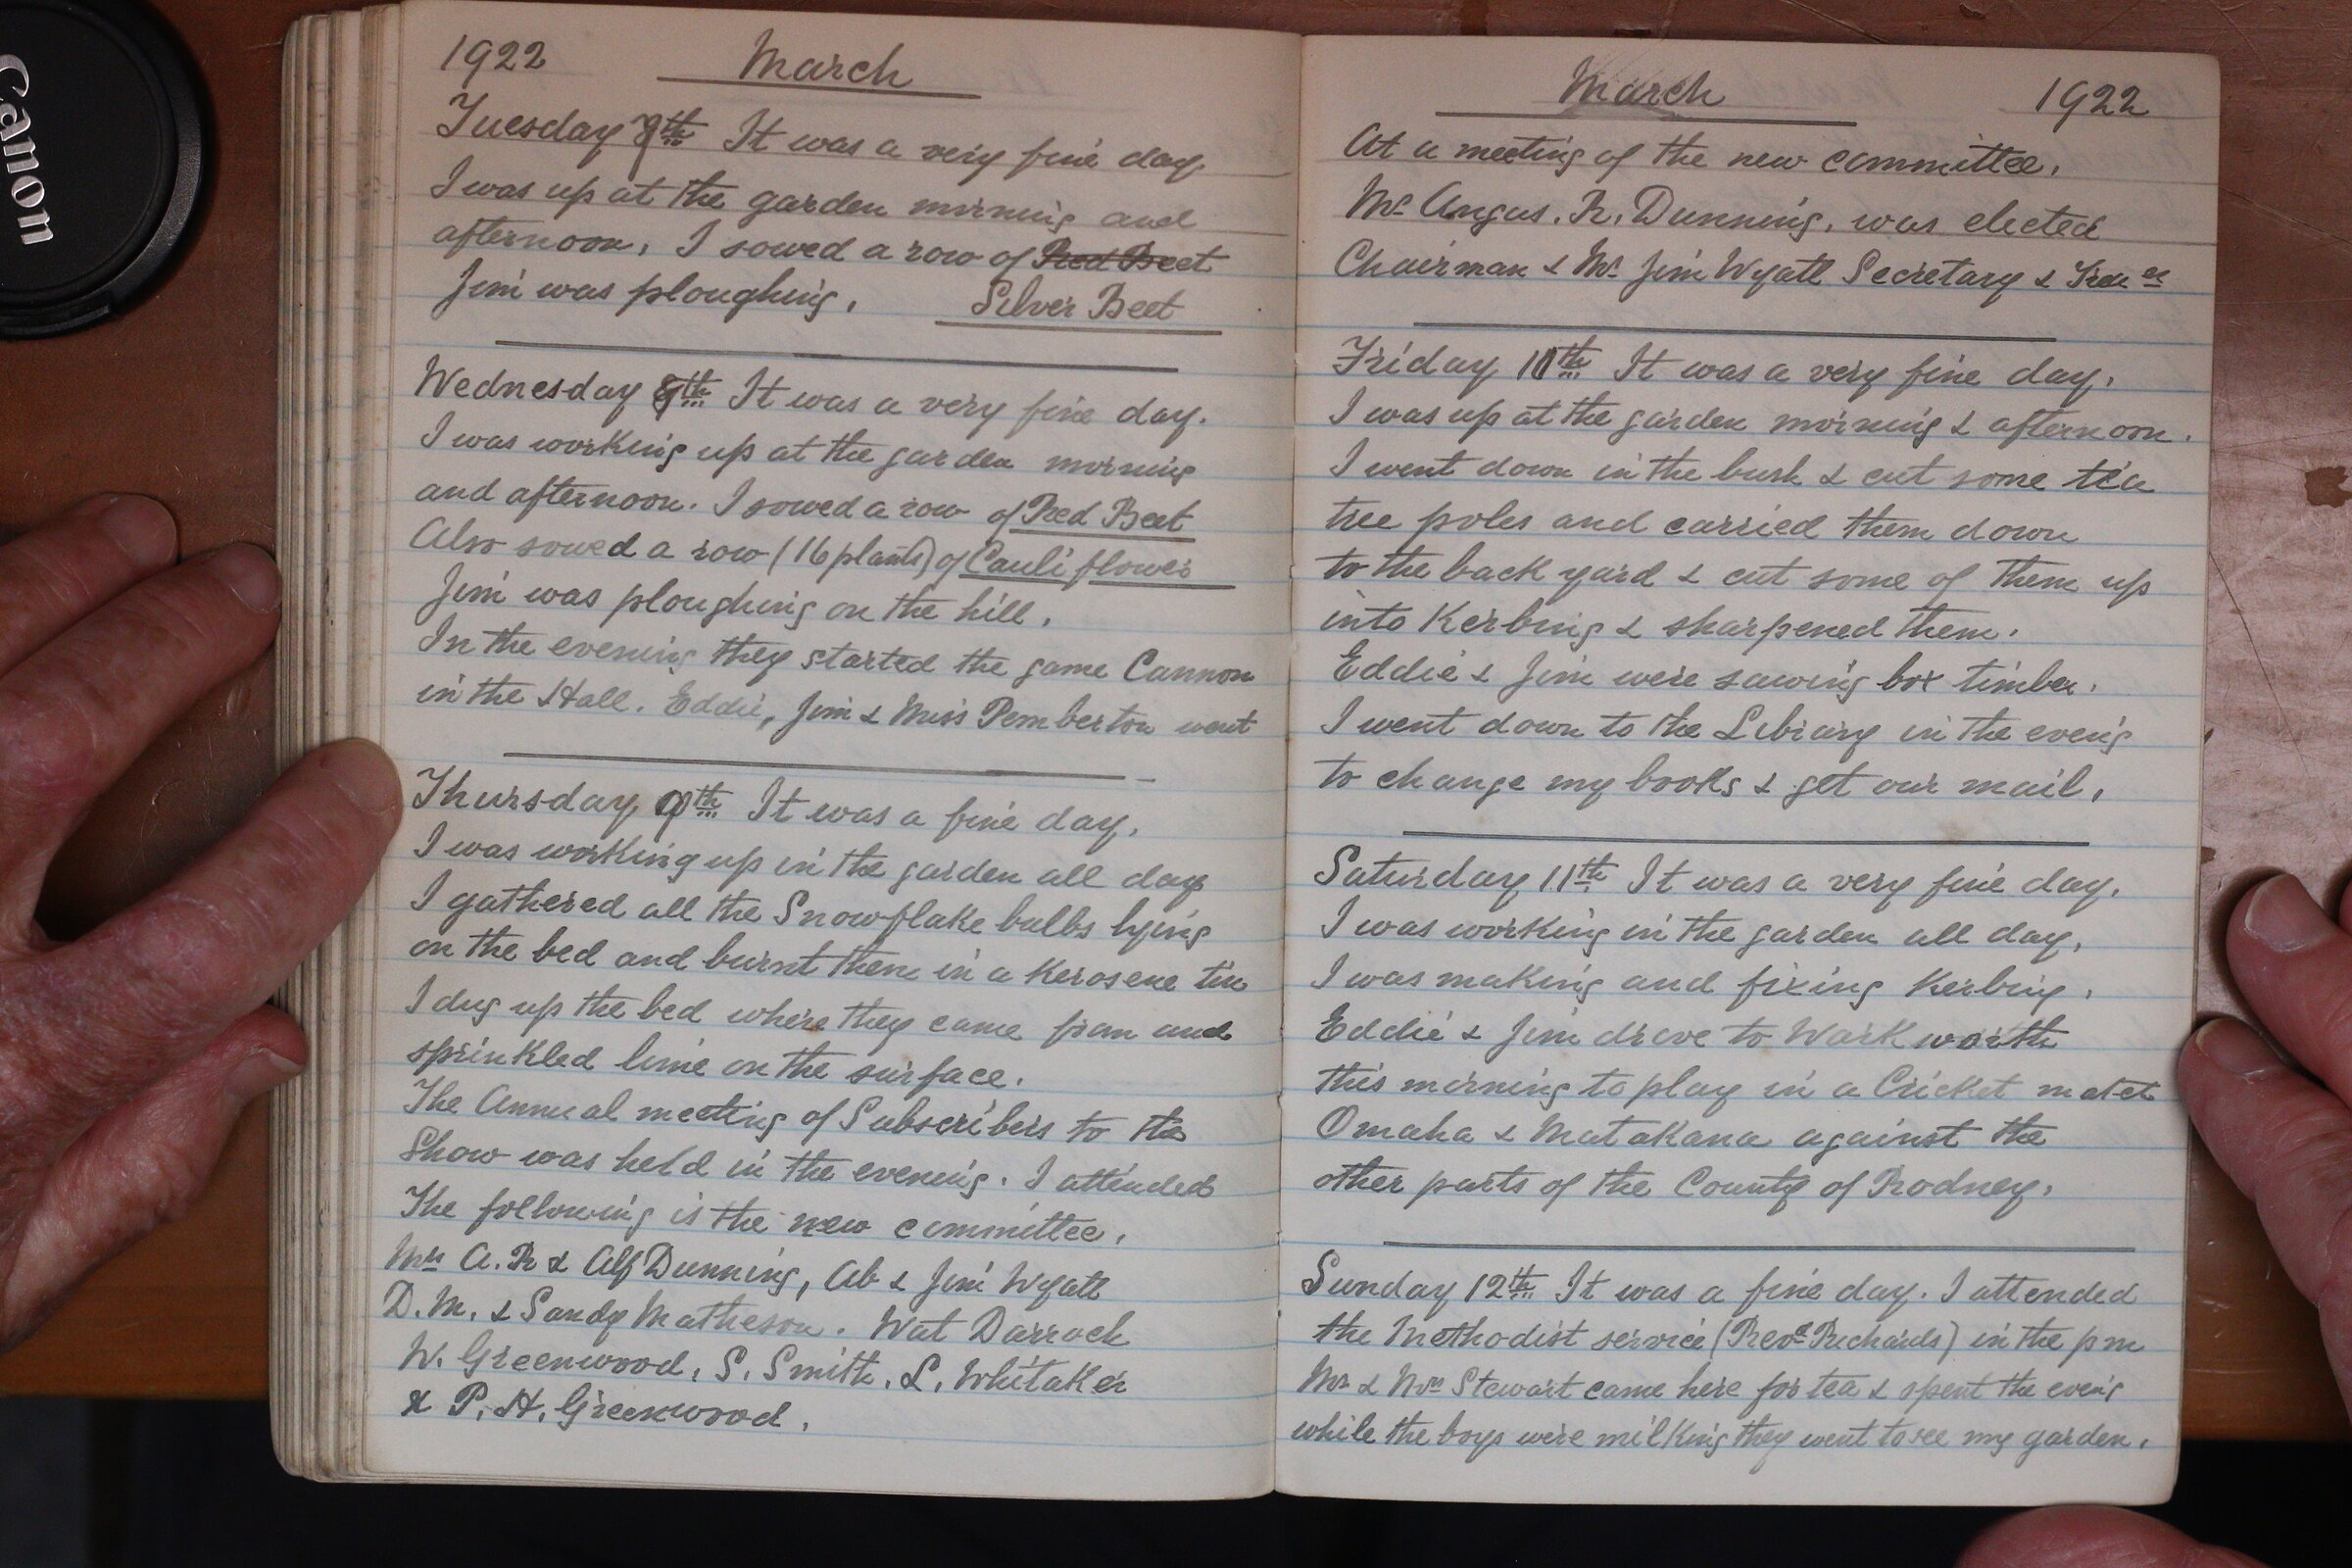 Canon
1922 March
Tuesday 7th It was a very fine day.
I was up at the garden morning and
afternoon. I sowed a row of Red Beet
Jim was ploughing. Silver Beet
Wednesday 8th It was a very fine day.
I was working up at the garden morning
and afternoon. I sowed a row of Red Beet
Also sowed a row (16 plants) of Cauliflower
Jim was ploughing on the hill.
In the evening they started the game Cannon
in the Hall. Eddie, Jim & Miss Pemberton went
Thursday 9th It was a fine day.
I was working up in the garden all day
I gathered all the Snowflake bulbs lying
on the bed and burnt them in a Kerosene tin
I dug up the bed where they came from and
sprinkled lime on the surface.
The Annual meeting of Subscribers to the
Show was held in the evening. I attended
The following is the new committee.
Mrs A. R & Alf Dunning, Ab & Jim Wyatt
D. M. & Sandy Matheson. Wat Darroch
W. Greenwood, S. Smith, L. Whitaker
& P. H. Greenwood.
March 1922
At a meeting of the new committee.
Mr Angus. R. Dunning. was elected
Chairman & Mr Jim Wyatt Secretary & Trea er
Friday 10th It was a very fine day.
I was up at the garden morning & afternoon.
I went down in the bush & cut some tea
tree poles and carried them down
to the back yard & cut some of them up
into Kerbing & sharpened them.
Eddie & Jim were sawing box timber.
I went down to the Library in the eveng
to change my books & get our mail.
Saturday 11th It was a very fine day.
I was working in the garden all day.
I was making and fixing Kerbing.
Eddie & Jim drove to Warkworth
this morning to play in a Cricket match
Omaha & Matakana against the
other parts of the County of Rodney.
Sunday 12th It was a fine day. I attended
the Methodist service (Revd Richards) in the pm
Mr & Mrs Stewart came here for tea & spent the eveng
while the boys were milking they went to see my garden.